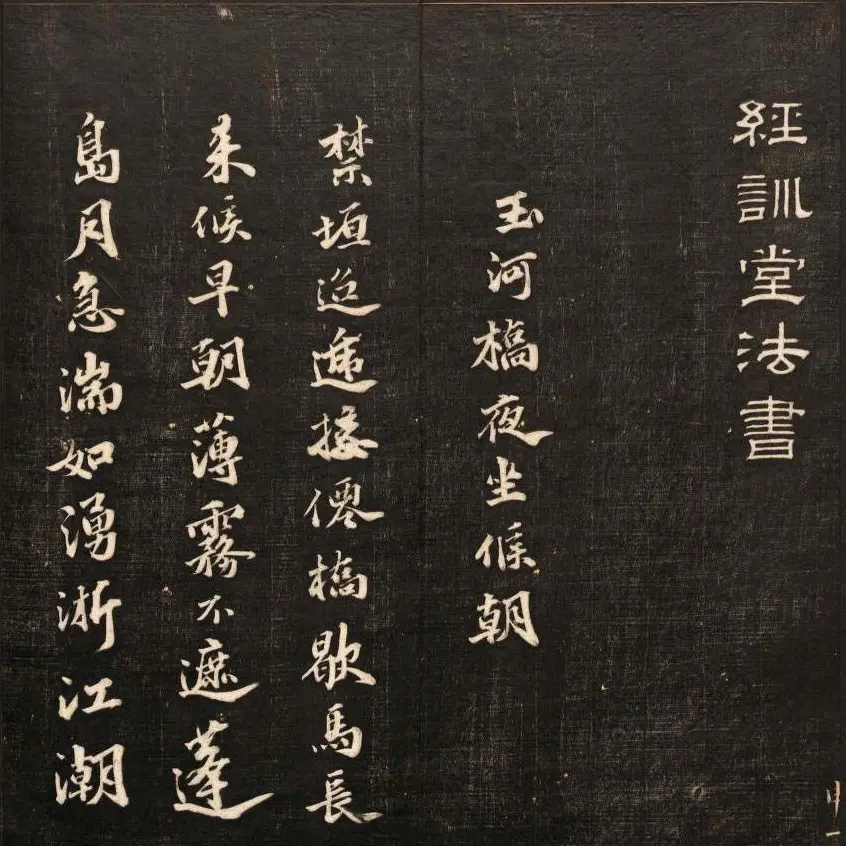 經訓堂法書
玉河橋夜坐候朝
禁垣迢遞接僊橋歇馬長
来候早朝薄霧不遮蓬
島月急湍如湧浙江潮